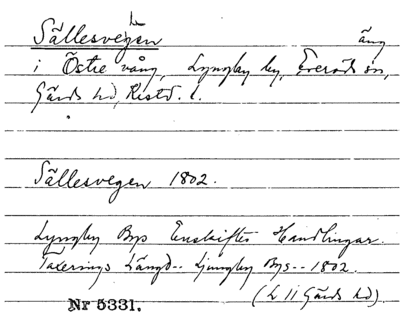 Sällesvegen äng
i Östre vång, Lyngby by, Everöds sn,
Gärds hd, Kristd. l.
Sällesvegen 1802.
Lyngby Bys Enskiftes Handlingar.
Taxerings Längd-- Ljungby Bys-- 1802.
(L 11 Gärds hd)
Nr 5331.